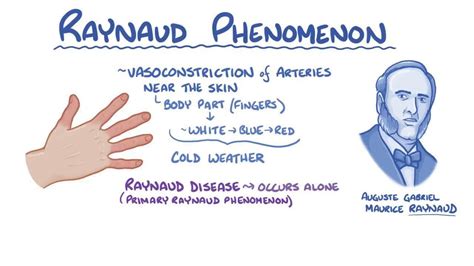 RAYNAUD PHENOMENON
~VASOCONSTRICTION of ARTERIES
NEAR THE SKIN
BODY PART (FINGERS)
~WHITE → BLUE → RED
COLD WEATHER
RAYNAUD DISEASE ~> OCCURS ALONE
(PRIMARY RAYNAUD PHENOMENON)
AUGUSTE GABRIEL
MAURICE RAYNAUD